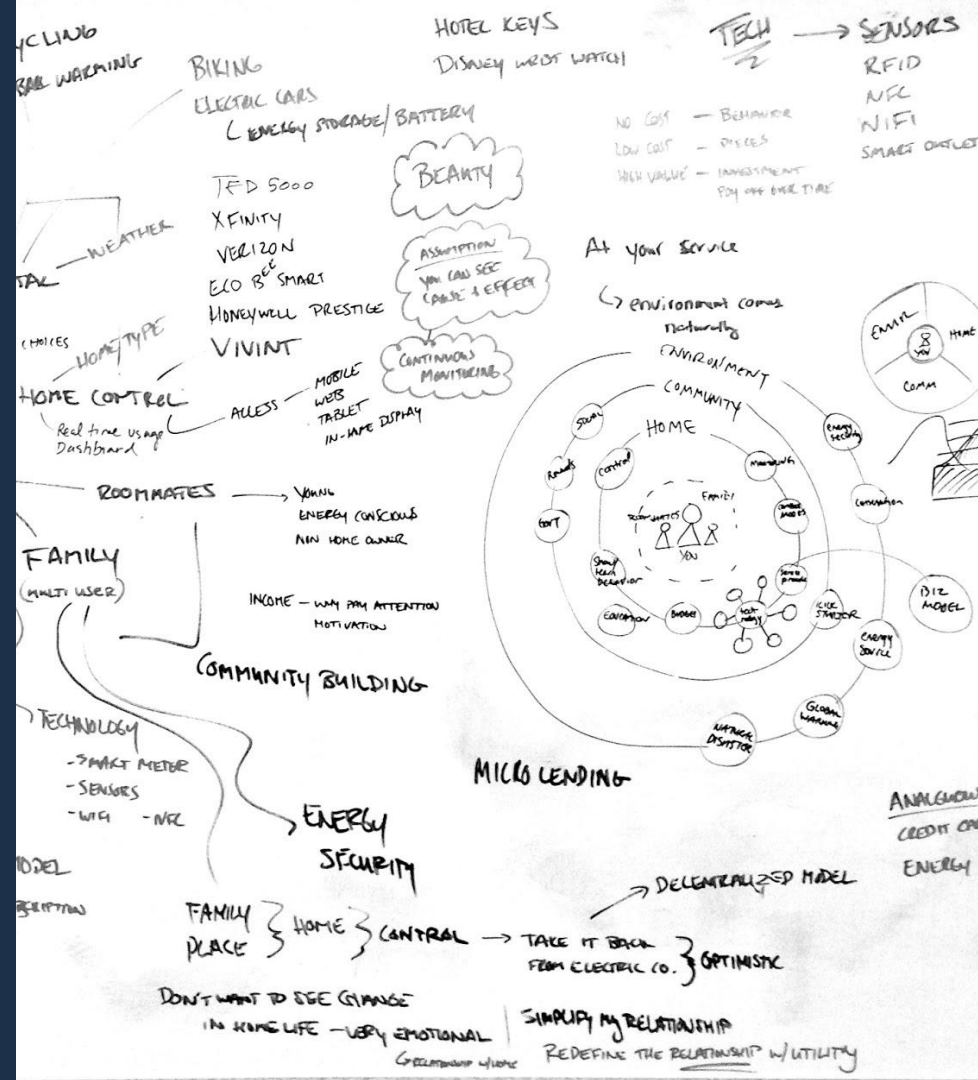 YCLING
BAL WARMING
BIKING
ELECTRIC CARS
ENERGY STORAGE/BATTERY
HOTEL KEYS
DISNEY WRIST WATCH
TECH
SENSORS
RFID
NFC
WIFI
SMART OUTLET
NO COST - BEHAVIOR
LOW COST - PIECES
HIGH VALUE - INVESTMENT
PAY OFF OVER TIME
TED 5000
XFINITY
VERIZON
ECO BEE SMART
HONEYWELL PRESTIGE
VIVINT
BEAUTY
ASSUMPTION
YOU CAN SEE
CAUSE & EFFECT
CONTINUOUS
MONITORING
TAL
WEATHER
CHOICES
HOME/TYPE
HOME CONTROL
Real time usage
Dashboard
ACCESS
MOBILE
WEB
TABLET
IN-HOME DISPLAY
At your service
environment comes
naturally
ENVIRONMENT
COMMUNITY
HOME
SOCIAL
Rewards
GOVT
Control
MONITORING
FAMILY
ROOMMATES
YOU
Service
provider
tech-
nology
BUDGET
EDUCATION
KICK
STARTER
energy
security
Conservation
BIZ
MODEL
ENERGY
SOURCE
GLOBAL
WARMING
NATURAL
DISASTER
ENVIR
HOME
YOU
COMM
ROOMMATES
YOUNG
ENERGY CONSCIOUS
NON HOME OWNER
FAMILY
(MULTI USER)
INCOME - WHY PAY ATTENTION
MOTIVATION
COMMUNITY BUILDING
TECHNOLOGY
- SMART METER
- SENSORS
- WIFI - NFC
MICRO LENDING
ENERGY
SECURITY
CREDIT CA
ENERGY
MODEL
FAMILY
PLACE
HOME
CONTROL
TAKE IT BACK
FROM ELECTRIC CO.
OPTIMISTIC
DECENTRALIZED MODEL
DON'T WANT TO SEE CHANGE
IN HOME LIFE - VERY EMOTIONAL
RELATIONSHIP W/HOME
SIMPLIFY MY RELATIONSHIP
REDEFINE THE RELATIONSHIP W/ UTILITY